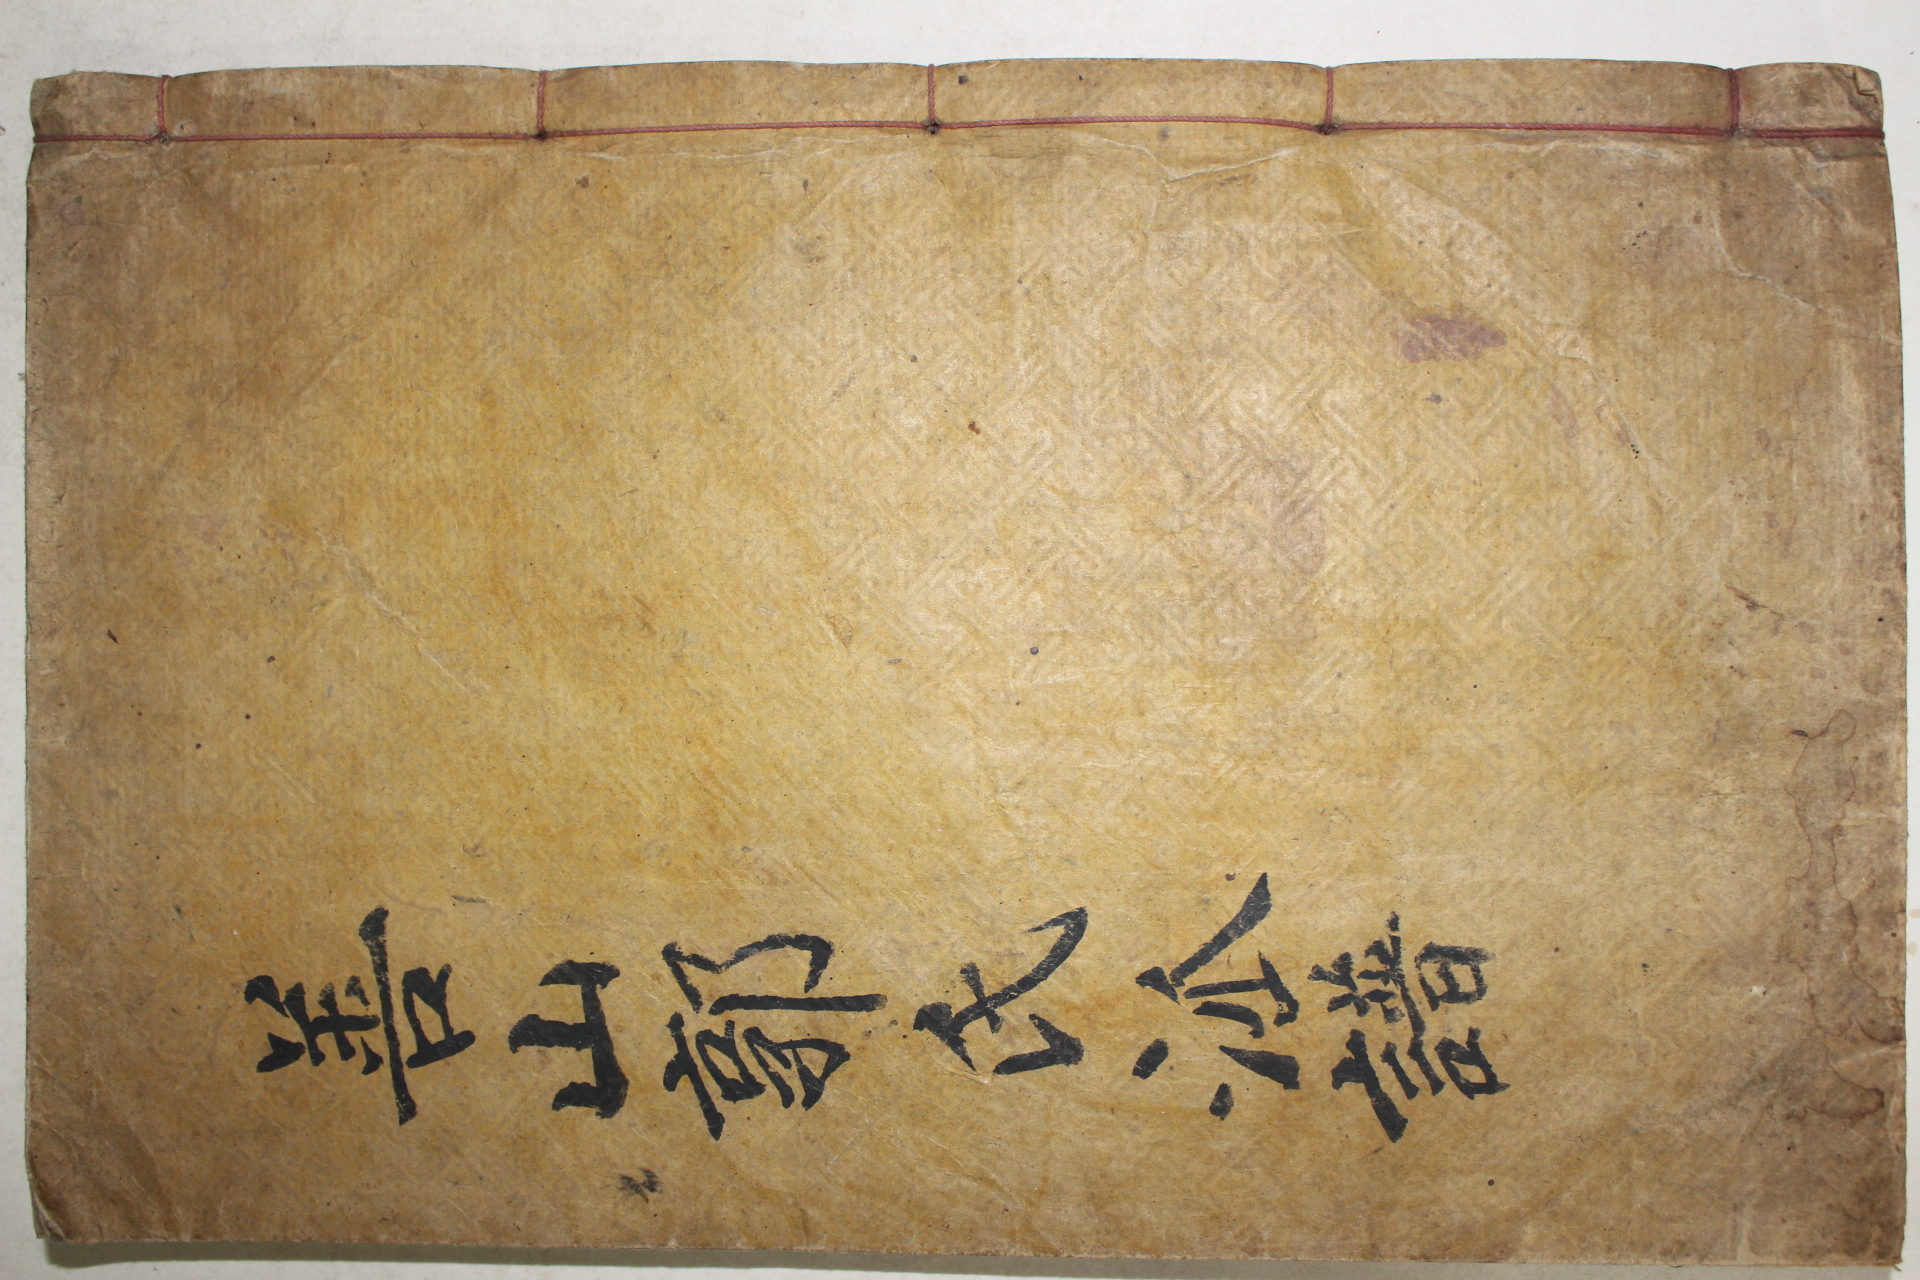 善山郭氏派譜